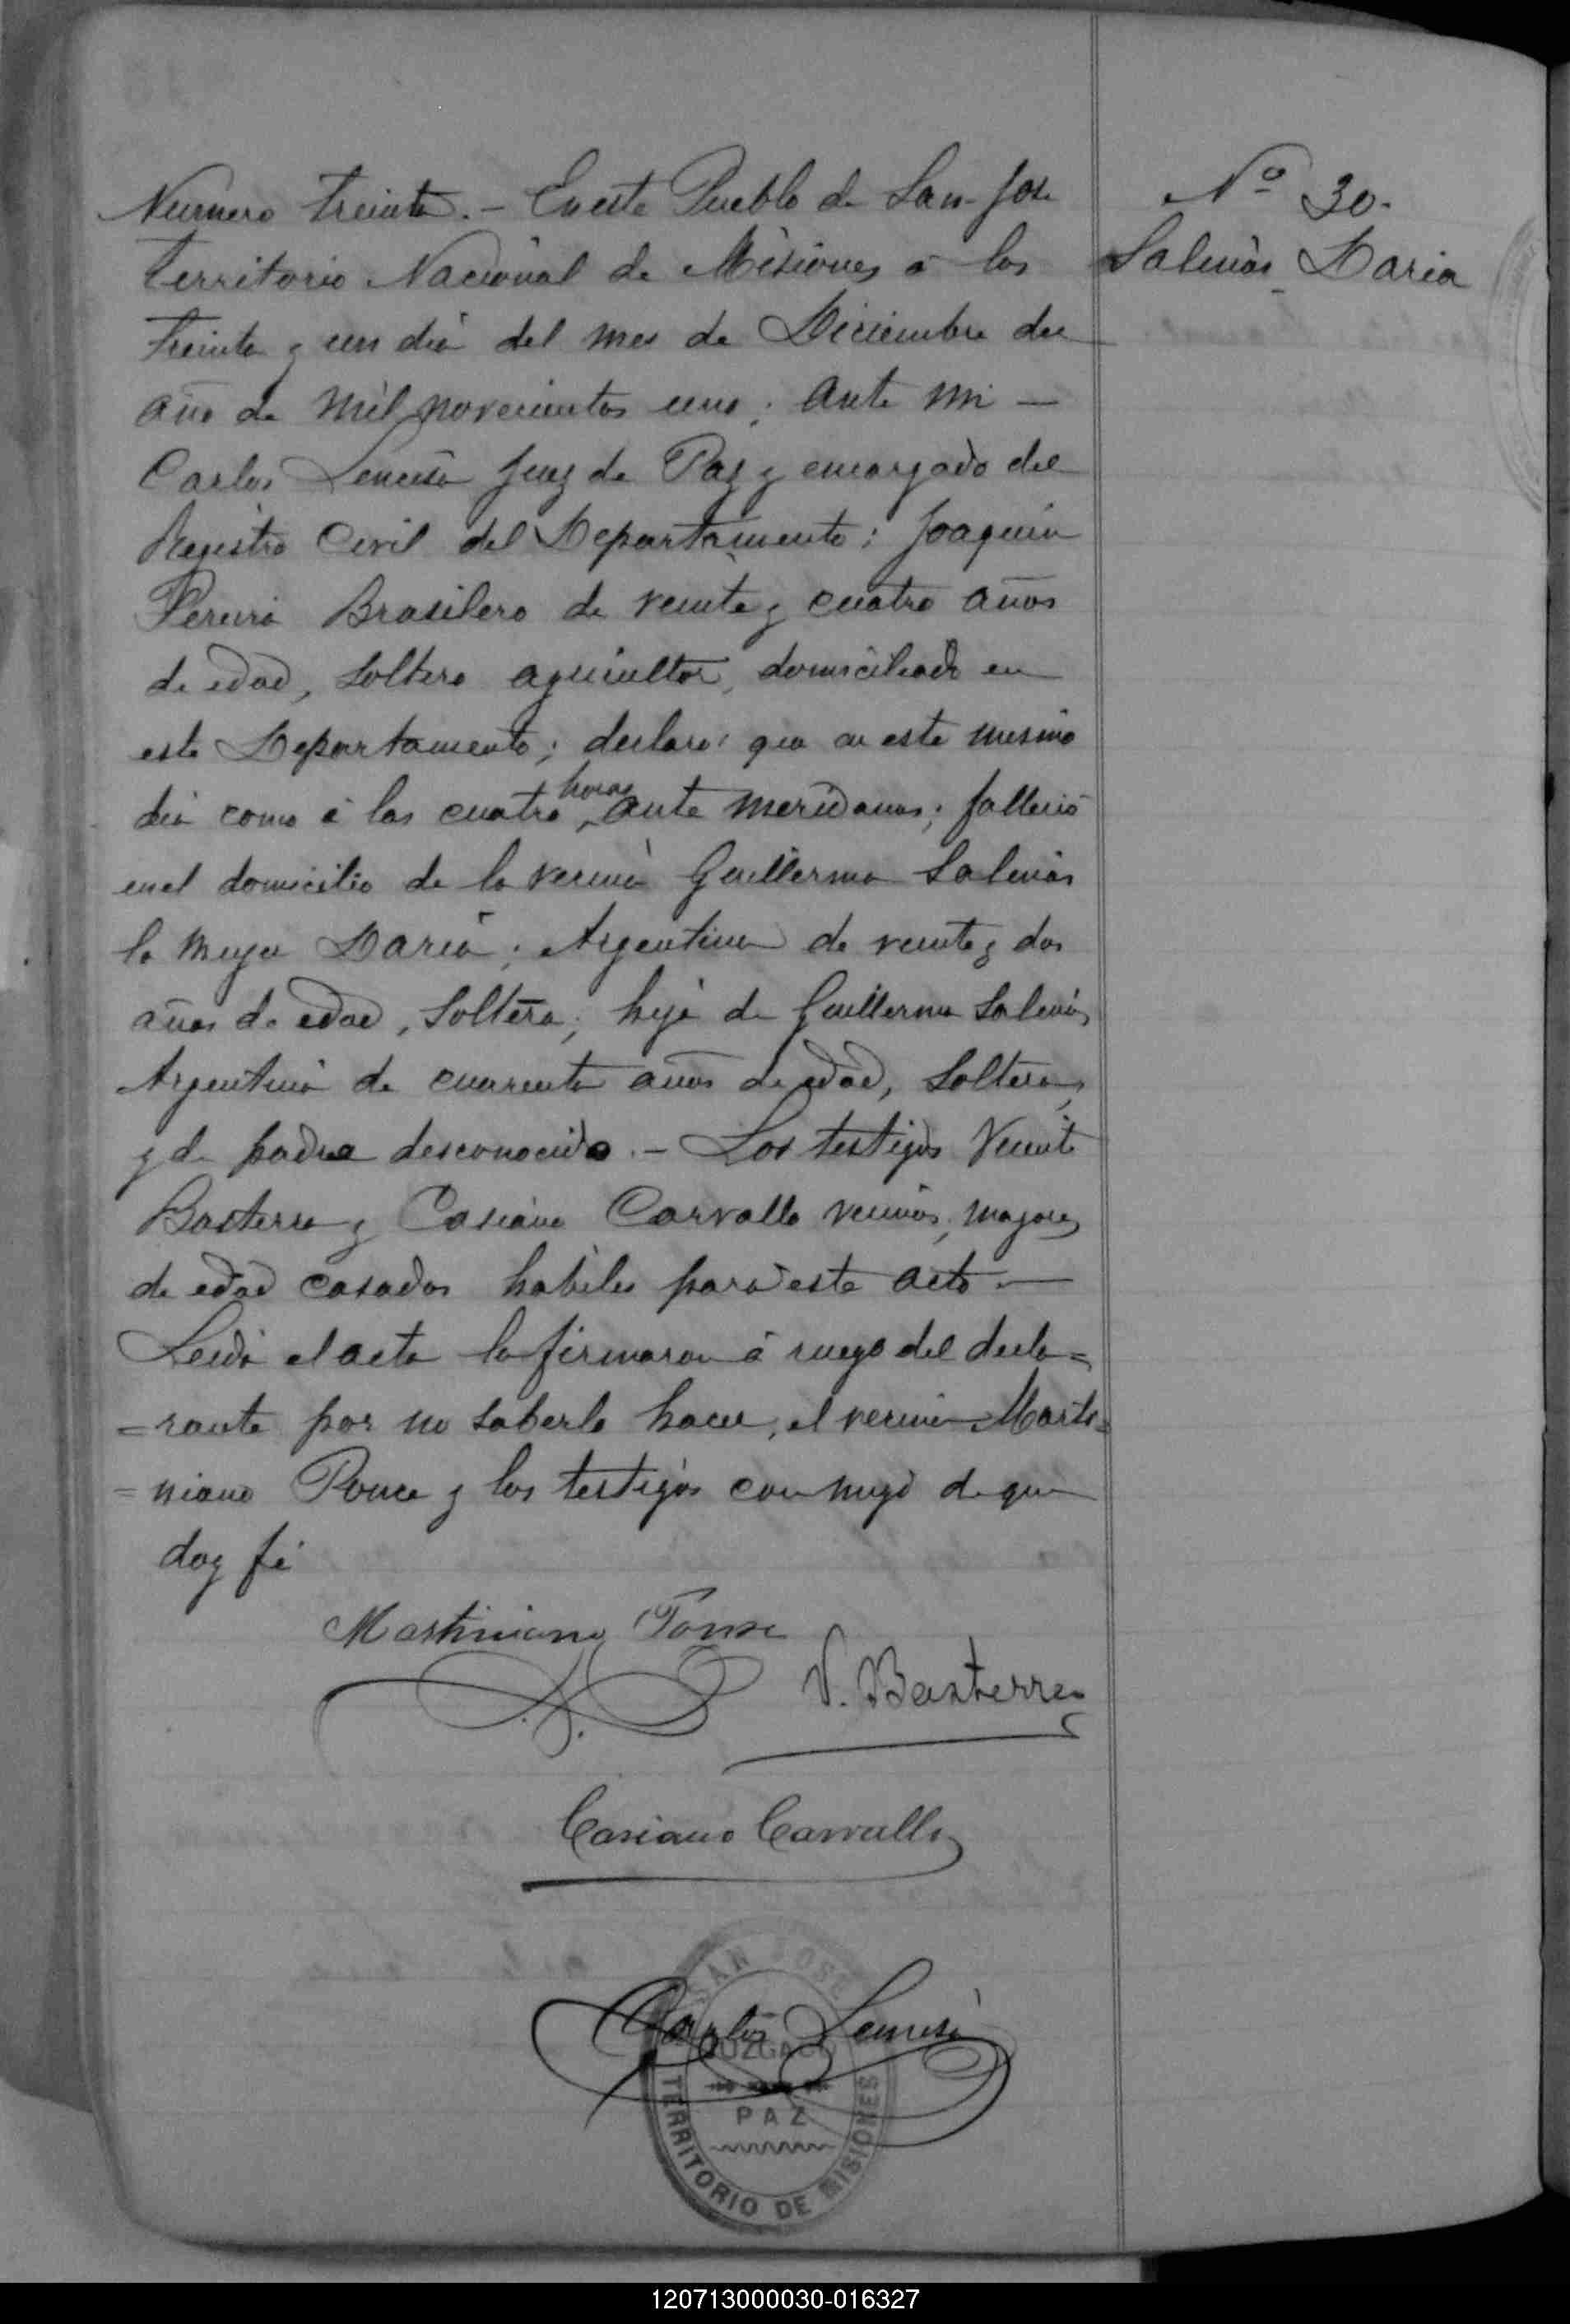 Numero treinta. - En este Pueblo de San José
Nº 30.
territorio Nacional de Misiones á los
Salinas Daria
treinta y un dia del mes de Diciembre del
año de mil novecientos uno; ante mi —
Carlos Juez de Paz y encargado del
Registro Civil del Departamento; Joaquin
Pereira Brasilero de veinte y cuatro años
de edad, soltero agricultor, domiciliado en
este Departamento; declaro: que en este mismo
dia como á las cuatro horas ante meridianas; falleció
en el domicilio de la vecina Guillerma Salinas
la mujer Daria; Argentina de veinte y dos
años de edad, soltera; hija de Guillerma Salinas
Argentina de cuarenta años de edad, soltera,
y de padre desconocido. - Los testigos Vicente
Basterra y Casiano Carvallo vecinos, mayores
de edad casados habiles para este acto. —
Leida el acta la firmaron á ruego del decla=
=rante por no saberlo hacer, el vecino Marti=
=niano Ponce y los testigos conmigo de que
doy fé
Martiniano Ponse
V. Basterra
Casiano Carvallo
SAN JOSE
Carlos
JUZGADO
PAZ
TERRITORIO DE MISIONES
120713000030-016327